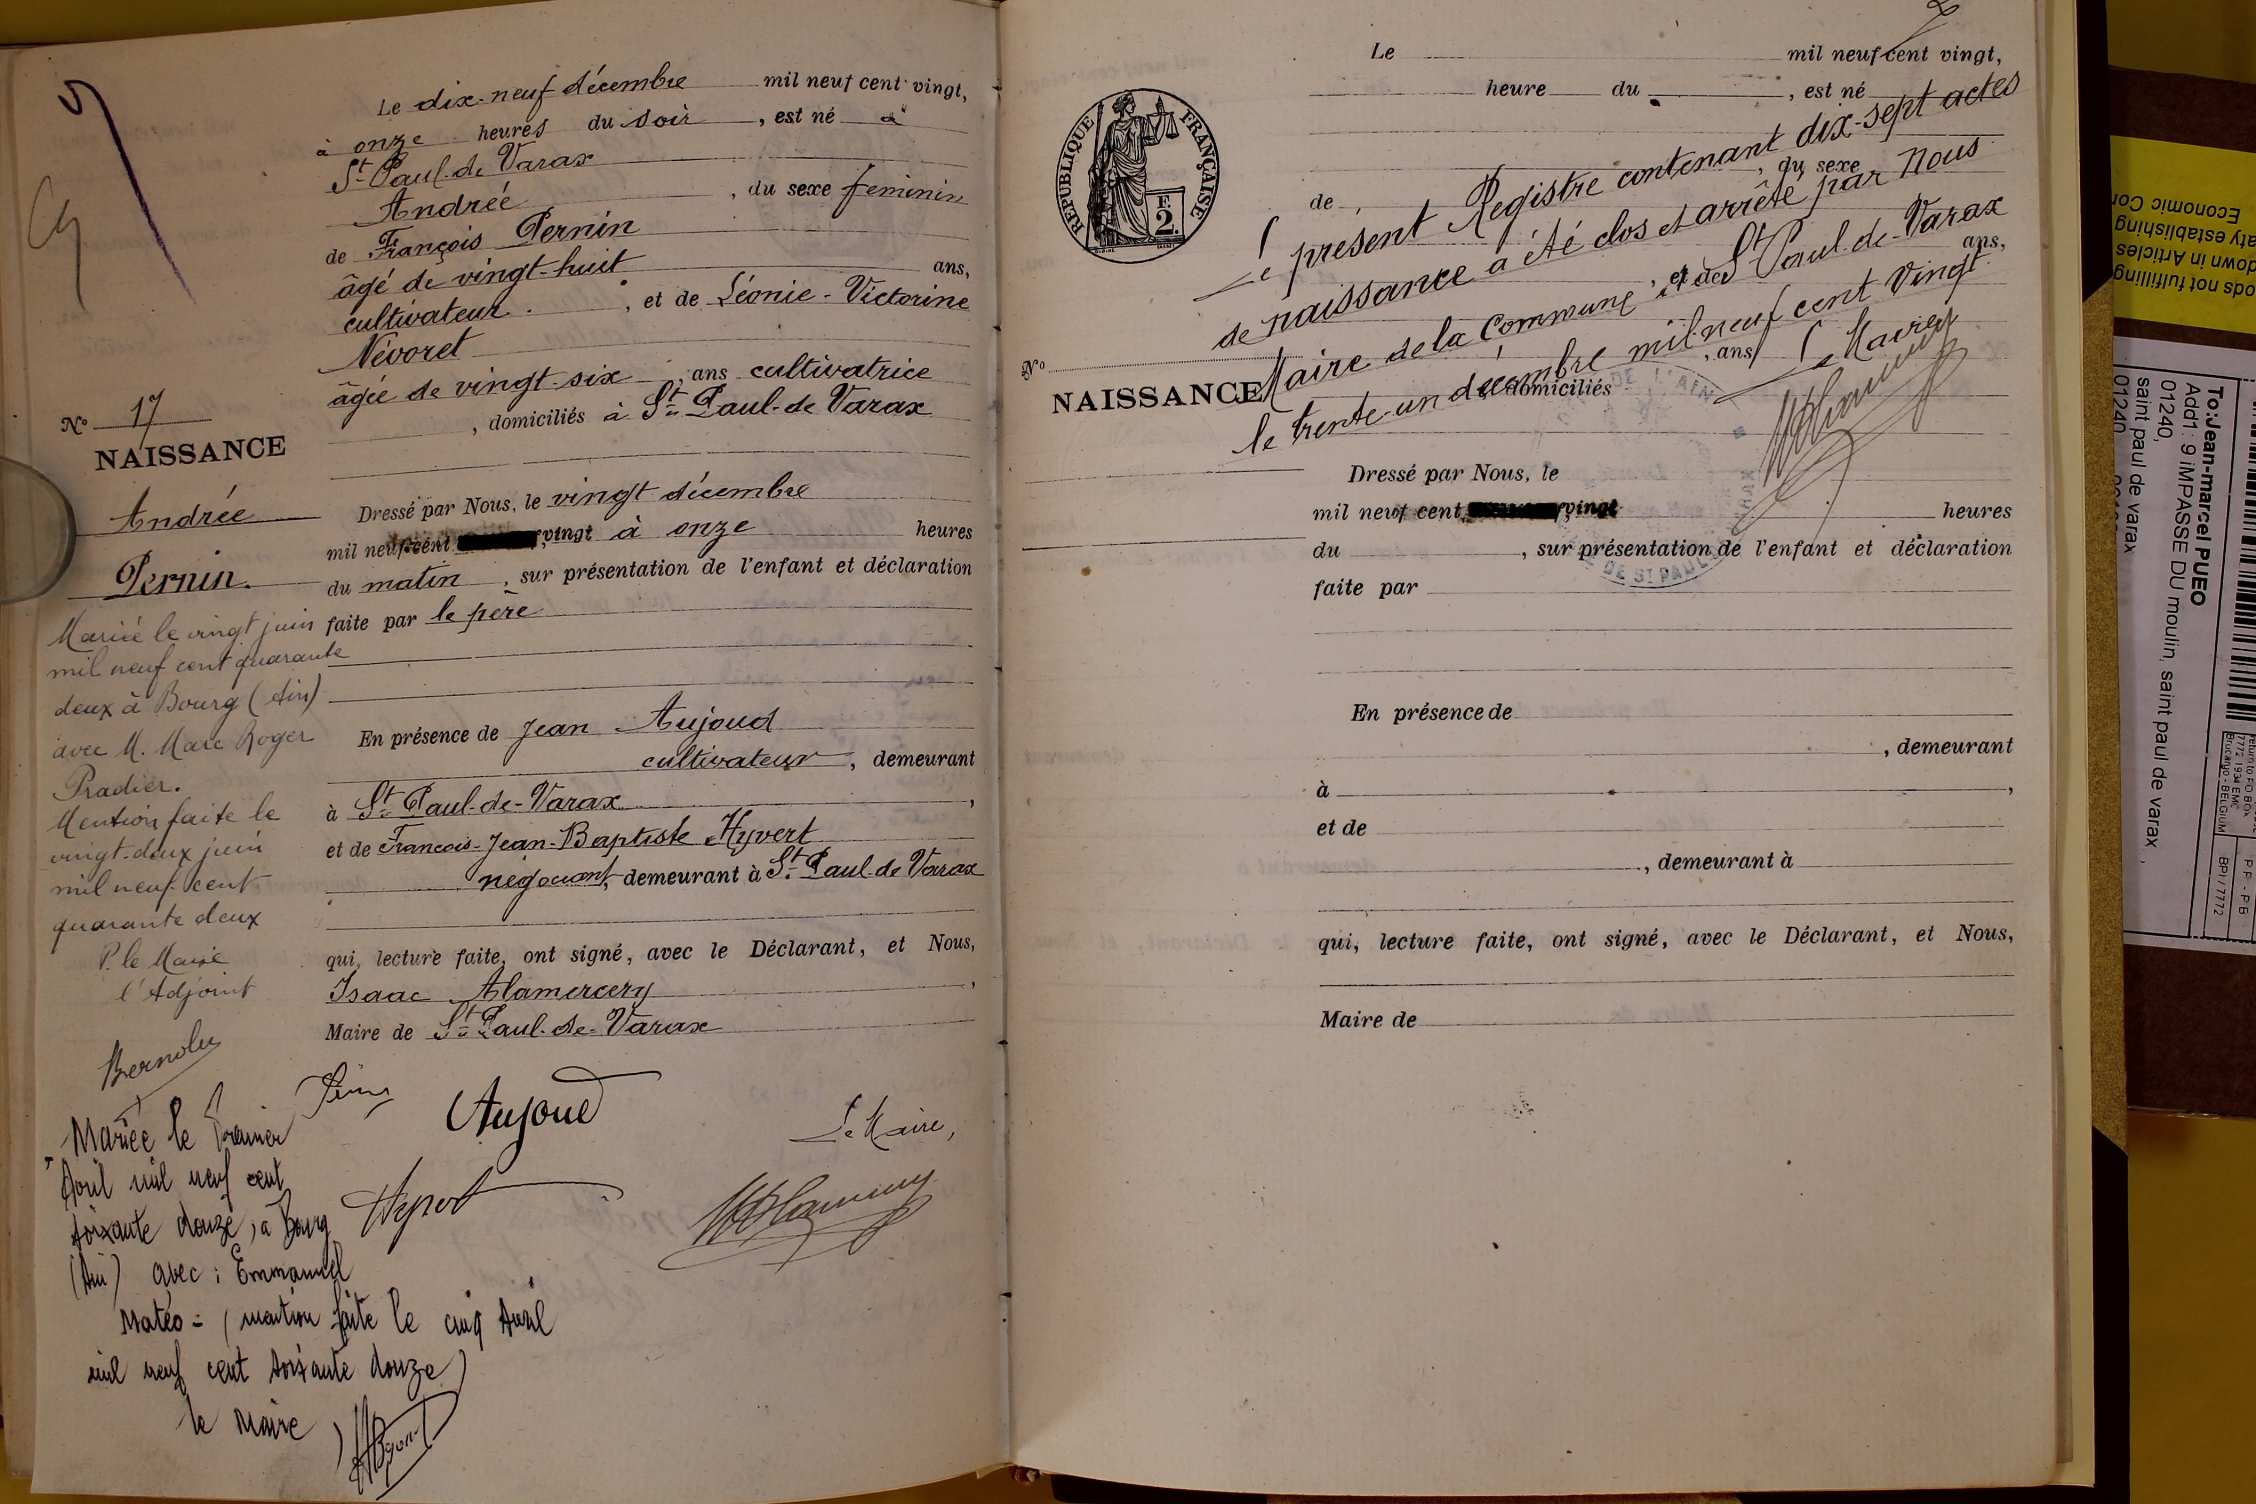 Le dix-neuf décembre mil neuf cent vingt,
à onze heures du soir, est né à
St Paul-de-Varax
Andrée, du sexe feminin
de François Pernin
âgé de vingt-huit ans,
cultivateur, et de Léonie-Victorine
Névoret
âgée de vingt-six, ans cultivatrice
, domiciliés à St Paul-de Varax
N° 17
NAISSANCE
Andrée
Pernin.
Dressé par Nous, le vingt décembre
mil neuf cent vingt à onze heures
du matin, sur présentation de l'enfant et déclaration
faite par le père
En présence de Jean Aujoud
cultivateur, demeurant
à St Paul-de-Varax,
et de Francois-Jean-Baptiste Hyvert
négociant, demeurant à St Paul-de Varax
qui, lecture faite, ont signé, avec le Déclarant, et Nous,
Isaac Alamercery,
Maire de St Paul-de-Varax
Aujoud
Le Maire,
Mariée le vingt juin
mil neuf cent quarante
deux à Bourg (Ain)
avec M. Marc Roger
Pradier.
Mention faite le
vingt-deux juin
mil neuf cent
quarante deux
P. le Maire
l'Adjoint
Mariée le Premier
Avril mil neuf cent
soixante douze, à Bourg
(Ain) avec : Emmanuel
Matéo = (mention faite le cinq Avril
mil neuf cent soixante douze)
le Maire
RÉPUBLIQUE FRANÇAISE
F.
2.
Le mil neuf cent vingt,
heure du, est né
, du sexe
de
, et de
ans,
, ans
domiciliés
Le présent Registre contenant dix-sept actes
de naissance a été clos et arrêté par Nous
Maire de la Commune de St Paul-de-Varax
le trente-un décembre mil-neuf cent vingt
Le Maire
N°
NAISSANCE
Dressé par Nous, le
mil neuf cent vingt heures
du, sur présentation de l'enfant et déclaration
faite par
DE L'AIN
DE ST PAUL
En présence de
, demeurant
à,
et de
, demeurant à
qui, lecture faite, ont signé, avec le Déclarant, et Nous,
Maire de
Economic
aty establishing
down in Articles
ods not fulfilling
To:Jean-marcel PUEO
Add1: 9 iMPASSE DU moulin, saint paul de varax,
01240,
saint paul de varax
01240
7772 1934 EMC
Brucargo - BELGIUM
PP - PB
BPI / 7772